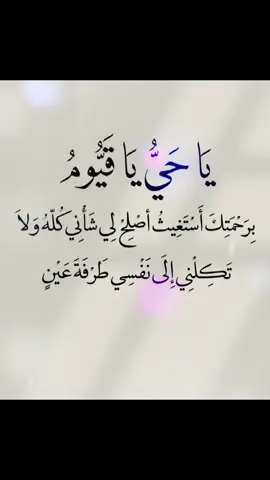 يَا حَيُّ يَا قَيُّومُ
بِرَحْمَتِكَ أَسْتَغِيثُ أَصْلِحْ لِي شَأْنِي كُلَّهُ وَلاَ
تَكِلْنِي إِلَى نَفْسِي طَرْفَةَ عَيْنٍ